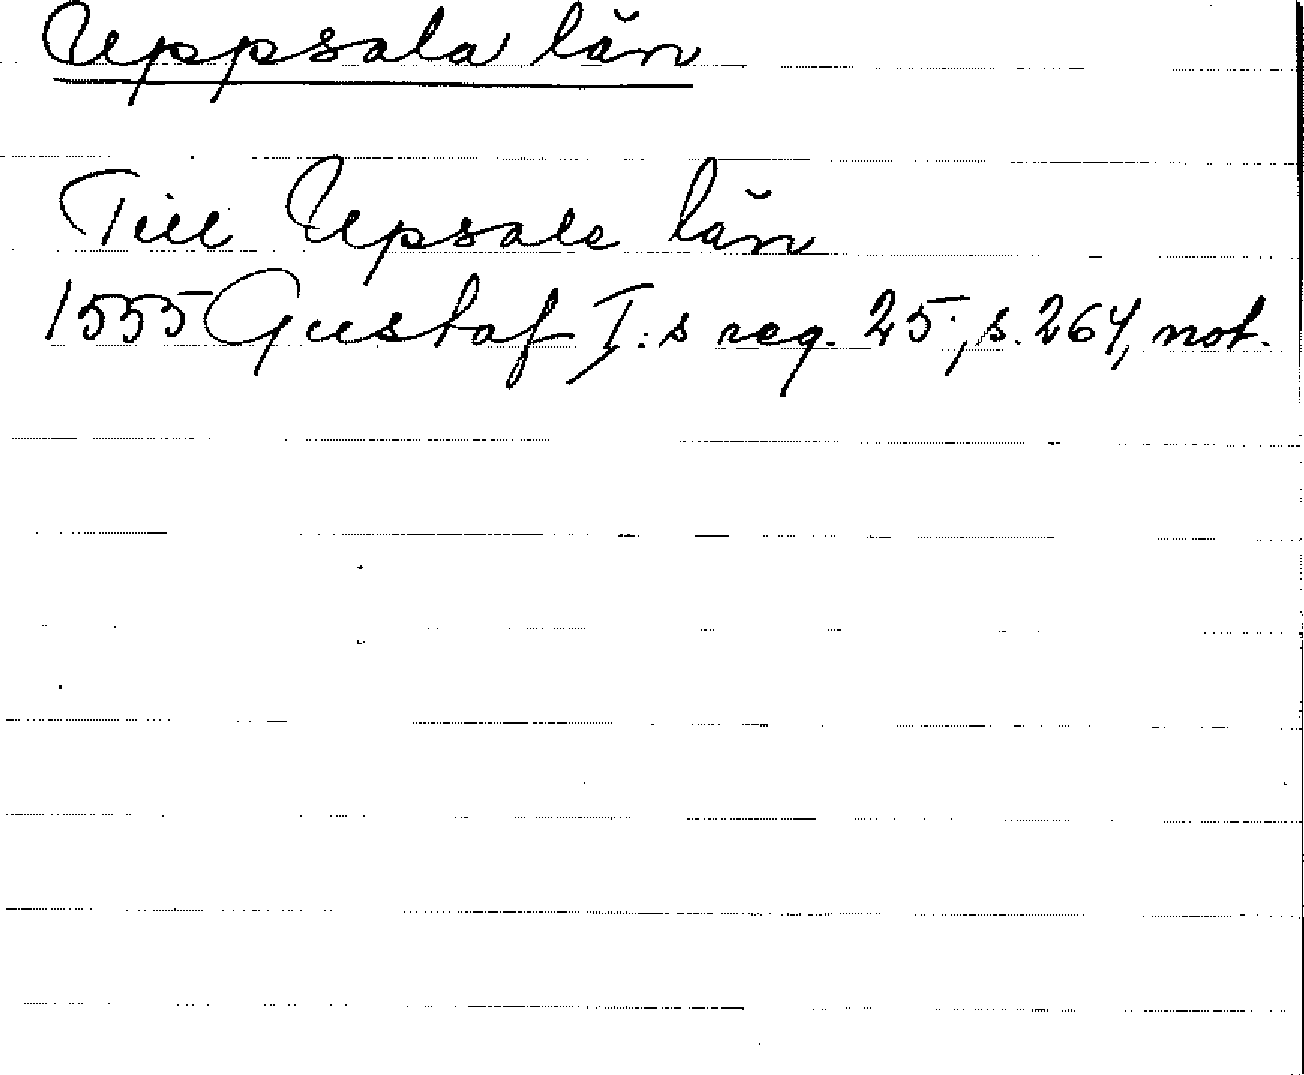 Uppsala län
Till Upsale län
1555 Gustaf I:s reg. 25, s. 264, not.